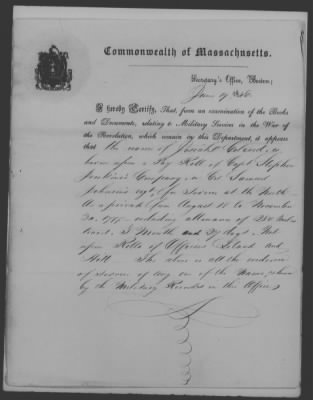 Commonwealth of Massachusetts.
Secretary's Office, Boston;
June 19
I hereby Certify, That, from an examination of the Books
and Documents, relating to Military Services in the War of
the Revolution, which remain in this Department, it appears
that the name of Josiah
borne upon a Pay Roll of Capt Stephen
Jenkins Company, in Col Samuel
Johnsons regt, for service at the North
as a private from August 15 to November
30, 1777, including allowance of 250 miles
travel. 3 Months and 27 days.
upon Rolls of Officers Island and
Hull The above is all the evidence
of service of any one of the name, shown
by the Military Records in this Office,